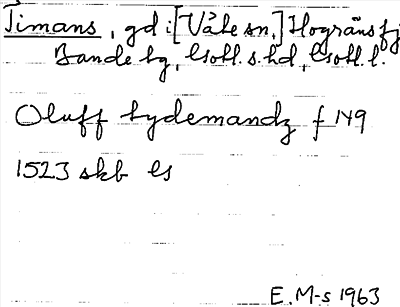 Timans, gd i [Väte sn,] Hogräns fj
Bande tg, Gotl. s. hd, Gotl. l.
Oluff tydemandz f 149
1523 skb Gs
E. M-s 1963